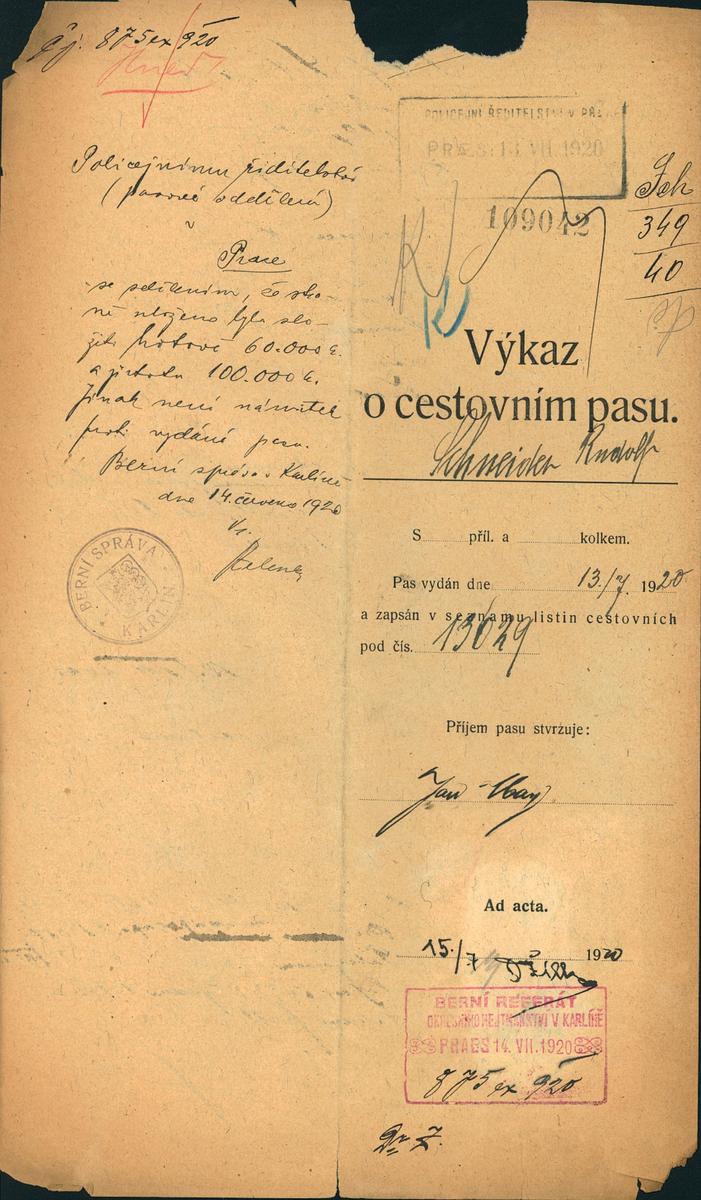 Čj. 875 ex 920
Policejnímu řiditelství
(pasové oddělení)
v
Praze
se sdělením, že
uloženo bylo slo-
žiti hotově 60.000 k.
a jistotu 100.000 k.
Jinak není námitek
proti vydání pasu.
Berní správa v Karlíně
dne 14. července 1920
BERNÍ SPRÁVA
KARLÍN
POLICEJNÍ ŘEDITELSTVÍ V PRAZE
PRAES: 13. VII. 1920
109042
Sch
349
40
Výkaz
o cestovním pasu.
Schneider Rudolf
S příl. a kolkem.
Pas vydán dne 13./7. 1920
a zapsán v seznamu listin cestovních
pod čís. 13029
Příjem pasu stvrzuje:
Jan
Ad acta.
15./7 1920
BERNÍ REFERÁT
OKRESNÍHO HEJTMANSTVÍ V KARLÍNĚ
PRAES 14. VII. 1920
875 ex 920